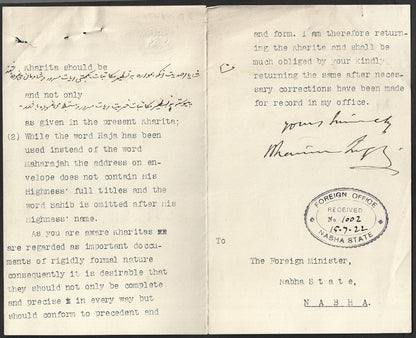 Aharita should be
and not only
as given in the present Aharita;
(2) While the word Raja has been
used instead of the word
Maharajah the address on en-
velope does not contain His
Highness' full titles and the
word Sahib is omitted after His
Highness' name.
As you are aware Aharitas
are regarded as important doccu-
ments of rigidly formal nature
consequently it is desirable that
they should not only be complete
and precise in every way but
should conform to precedent and
and form. I am therefore return-
ing the Aharita and shall be
much obliged by your kindly
returning the same after neces-
sary corrections have been made
for record in my office.
Yours sincerely
FOREIGN OFFICE
RECEIVED
No. 1002
15-7-22
NABHA STATE
To
The Foreign Minister,
Nabha State,
N A B H A.